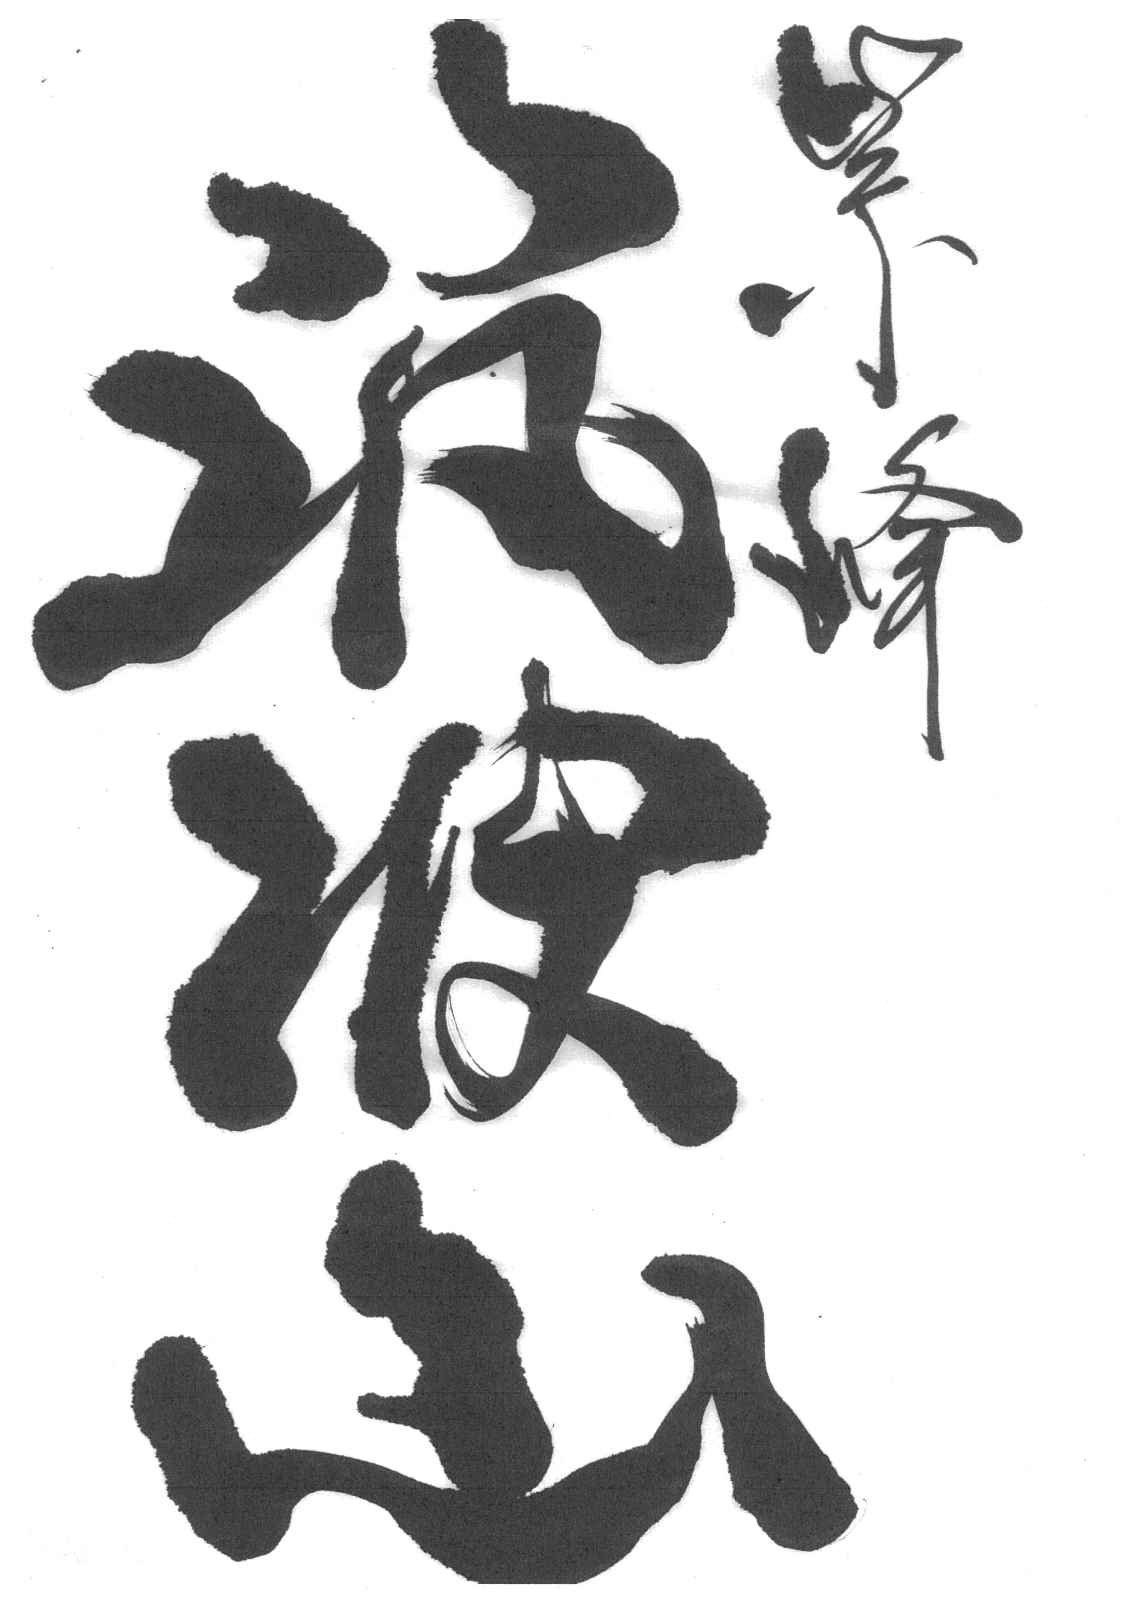 紫峰
筑波山